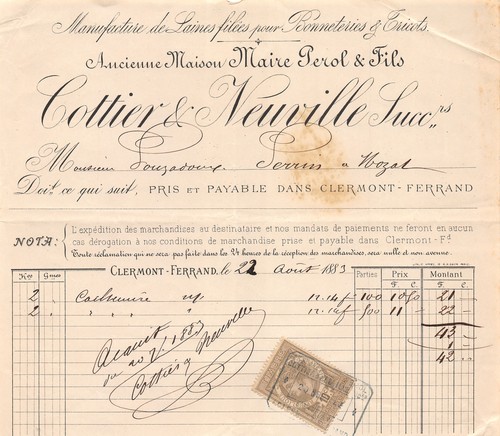 Manufacture de Laines filées pour Bonneteries & Tricots.
Ancienne Maison Maire Perol & Fils
Cottier & Neuville Succrs
Monsieur Perrin à Mozat
Doit ce qui suit, PRIS ET PAYABLE DANS CLERMONT-FERRAND
NOTA: L'expédition des marchandises au destinataire et nos mandats de paiements ne feront en aucun
cas dérogation à nos conditions de marchandise prise et payable dans Clermont-Fd
Toute réclamation qui ne sera pas faite dans les Vt heures de la réception des marchandises, sera nulle et non avenue.
CLERMONT-FERRAND, le 22 Août 1883
Kos Gmes Parties Prix Montant
F. C. F. C.
2 Cachemire 12.14f 100 10 50 21 -
2 " " " 12.14f 500 11 - 22 -
43 -
1 -
42 -
Acquit
Cottier & Neuville